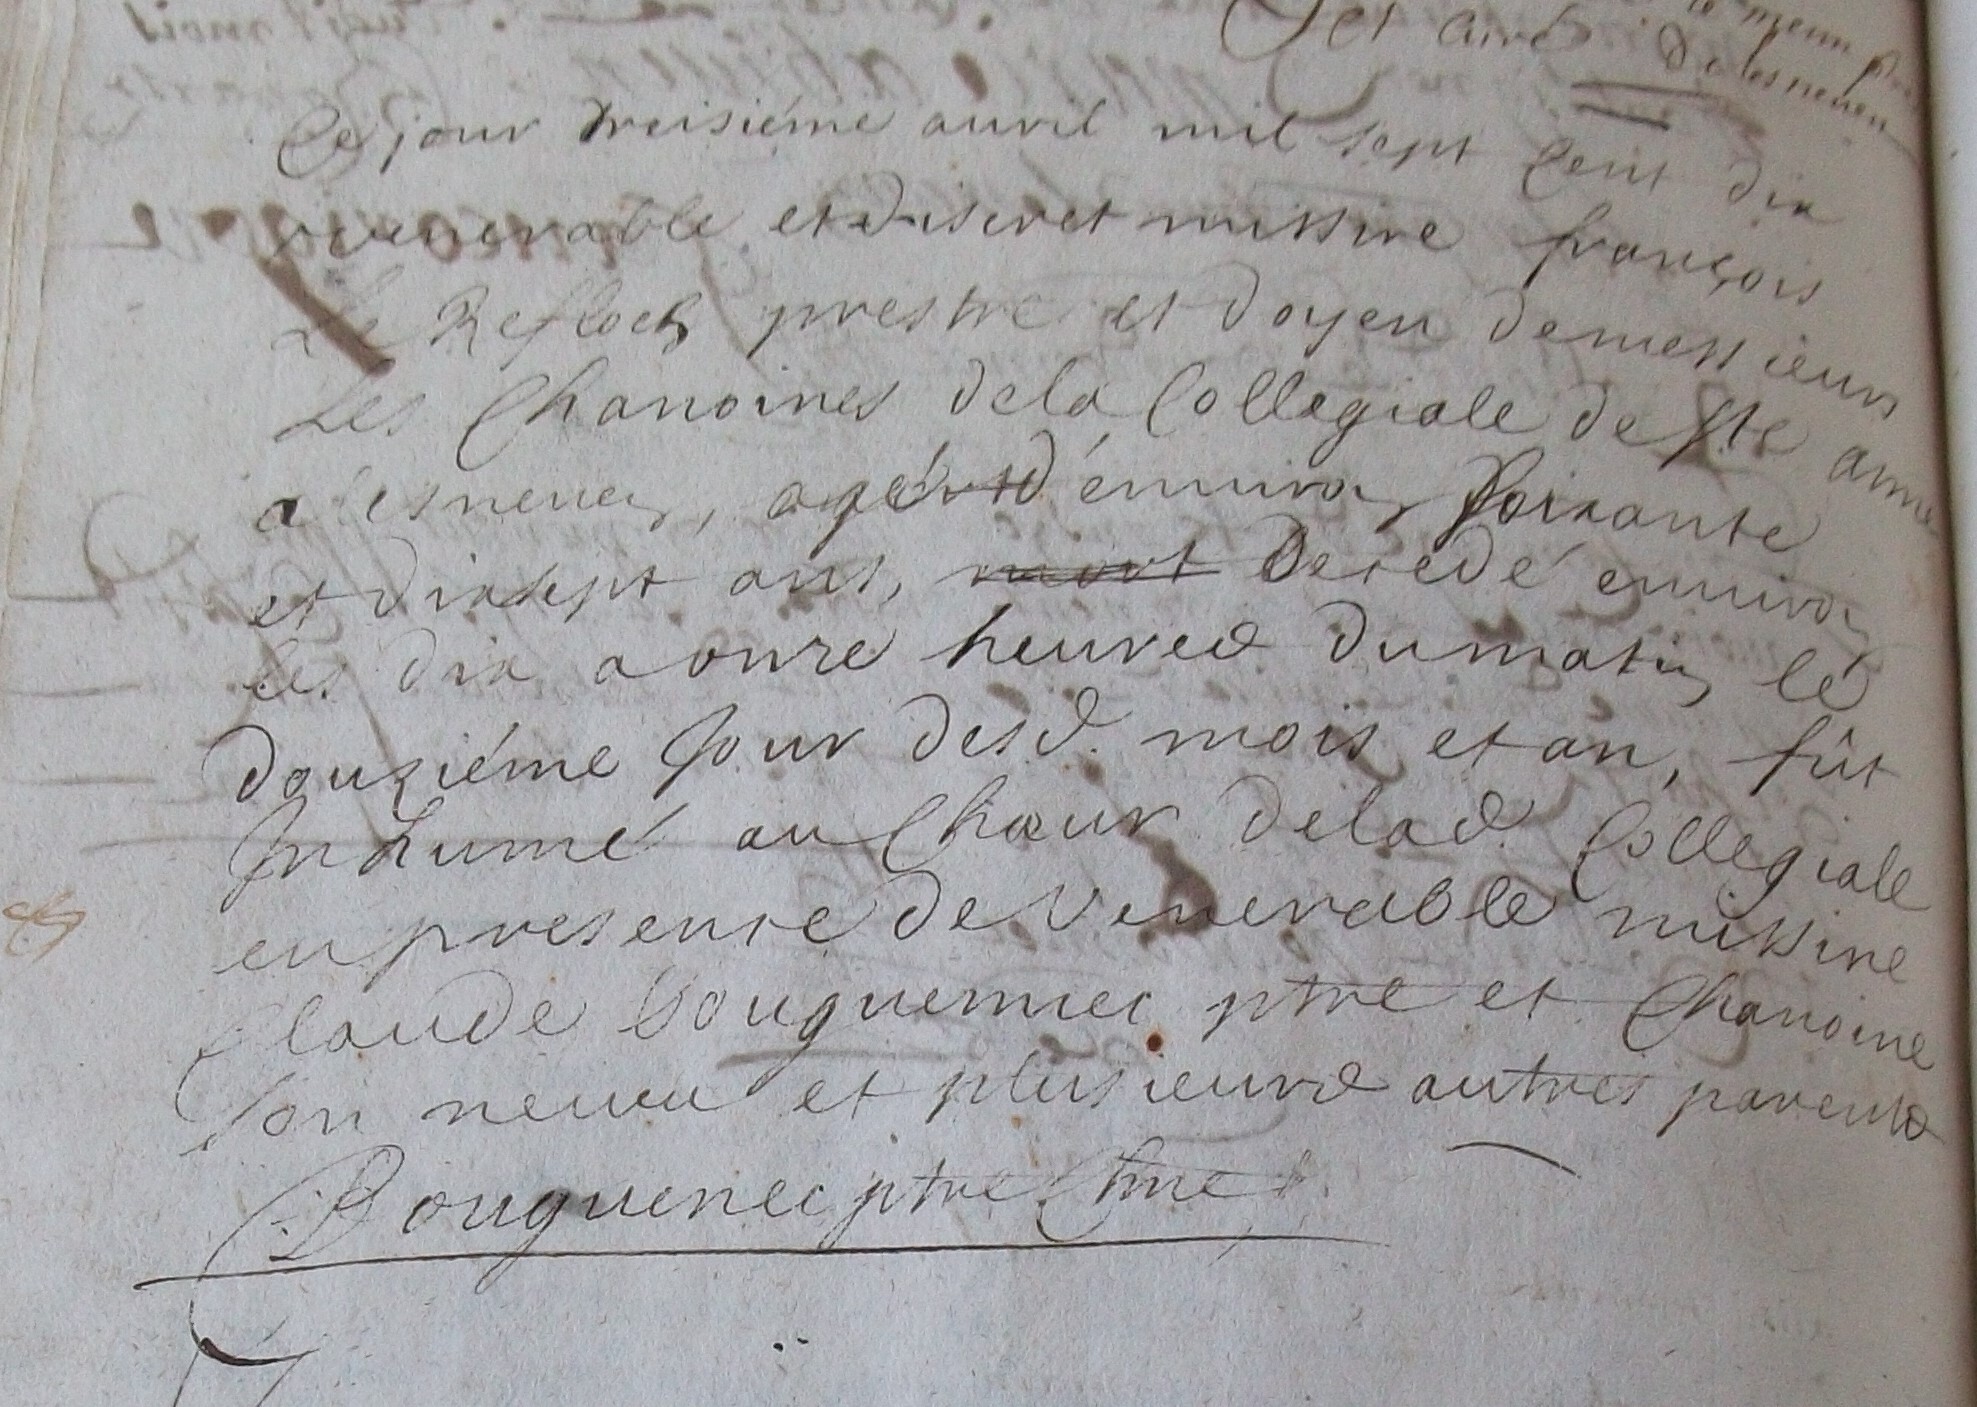 et curé de lesneven
Ce jour treisiéme auvril mil sept cent dix
venerable et discret missire françois
Le Refloch prestre et doyen de messieurs
Les Chanoines de la Collegiale de Ste anne
a lesneven, agé d'environ soixante
et dixsept ans, mort decedé environ
les dix a onze heures du matin le
douziéme Jour desd. mois et an, fût
Inhumé au Chœur de lad. Collegiale
en presence de Venerable missire
Claude Bouguennec ptre et Chanoine
son neveu et plusieurs autres parents
Bouguenec ptre Chne